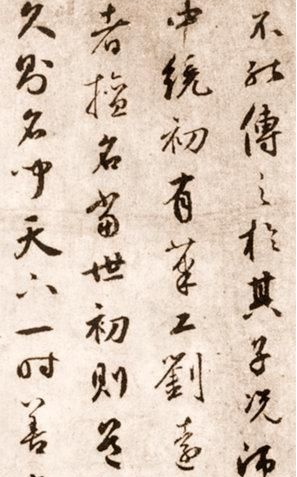 不能傳之於其子況師
中統初有筆工劉遠
者擅名當世初則
久則名天下一時善